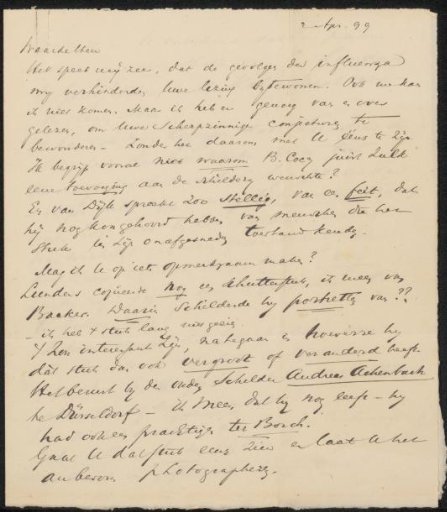 2 Apr. 99
Waarde Heer
Het speet mij zeer, dat de gevolgen der influenza
mij verhinderden Uwe lezing bijtewonen. Ook nu kan
ik niet komen. Maar ik heb er genoeg van en over
gelezen, om Uwe scherpzinnige conjectures te
bewonderen – zonder het daarom met U eens te zijn
Ik begrijp vooral niet waarom B. Cocq juist zulk
eene toevoeging aan de schilderij wenschte?
En van Dijk spreekt zoo stellig, van een feit, dat
hij nog kon gehoord hebben van menschen die het
stuk in zijn onafgesneden toestand kende.
Mag ik U op iets opmerkzaam maken?
Lundens copieerde nog een schuttersstuk, ik meen van
Backer. Daarin schilderde hij portretten van ??
– ik heb 't stuk lang niet gezien
't Zou interessant zijn, na te gaan in hoeverre hij
dat stuk dan ook vergroot of veranderd heeft.
Het berust bij den ouden schilder Andreas Achenbach
te Düsseldorf – ik meen dat hij nog leeft – hij
had ook een prachtigen ter Borch.
Gaat U dat stuk eens zien en laat U het
aub photographeeren.